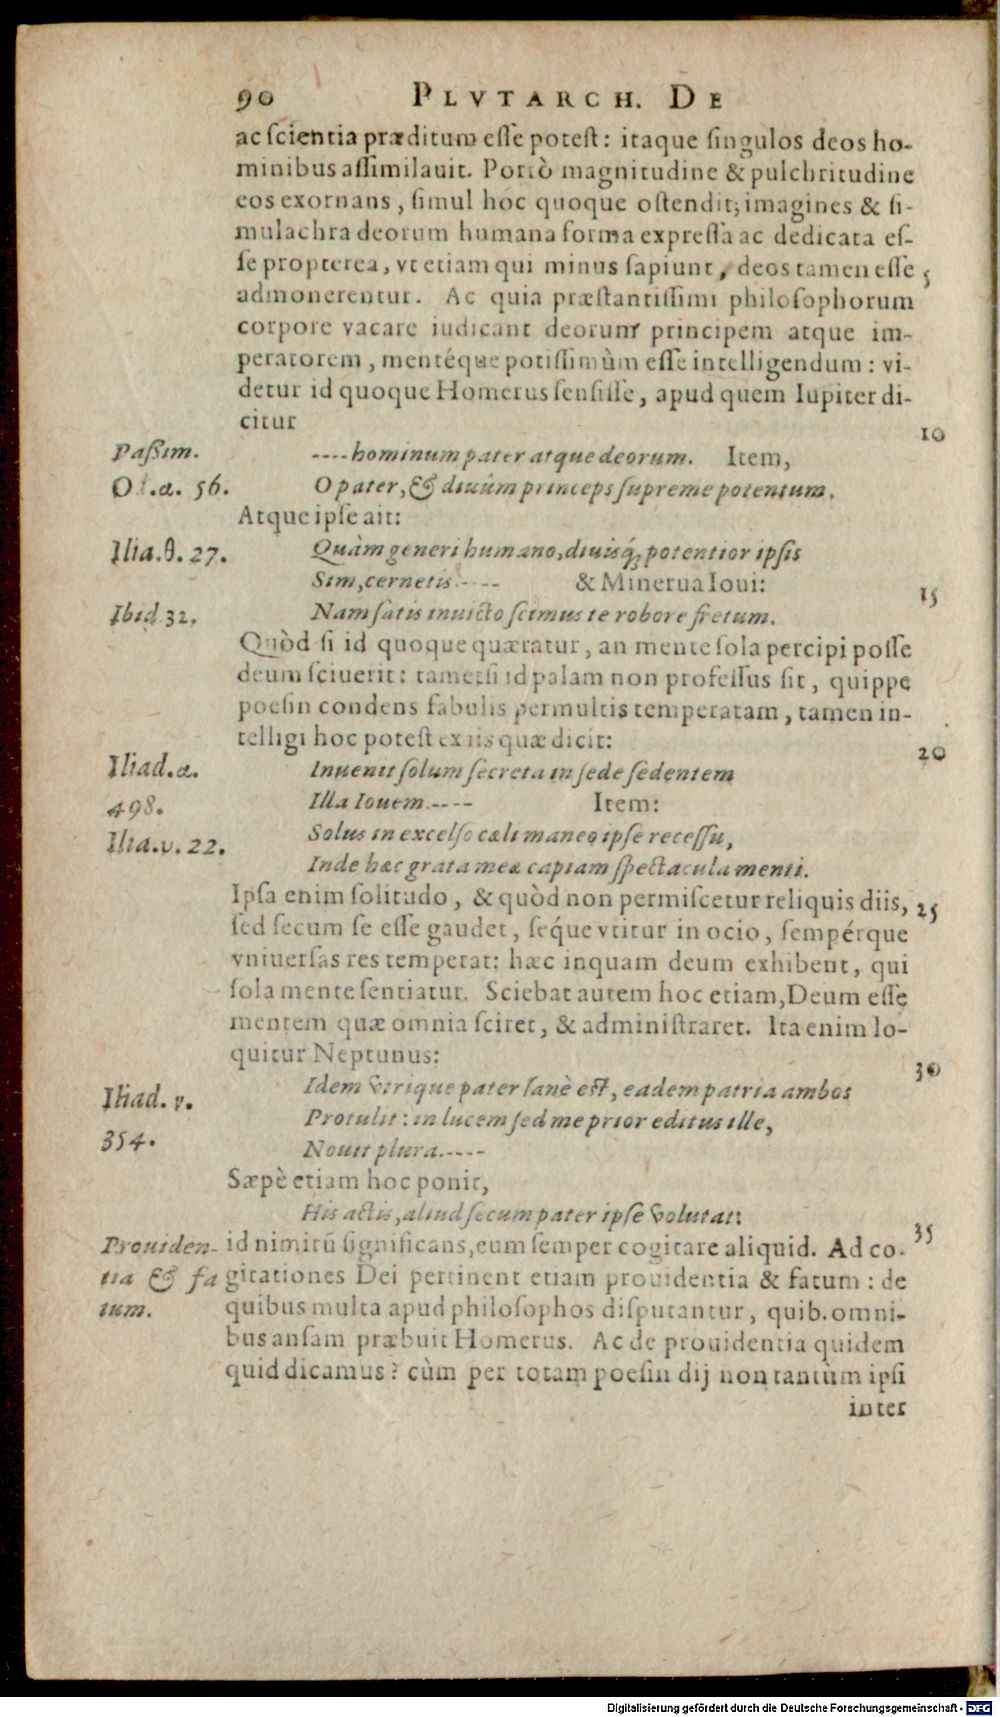 90 PLVTARCH. DE
ac scientia præditum esse potest: itaque singulos deos ho-
minibus assimilauit. Porrò magnitudine & pulchritudine
eos exornans, simul hoc quoque ostendit; imagines & si-
mulachra deorum humana forma expressa ac dedicata es-
se propterea, vt etiam qui minus sapiunt, deos tamen esse 5
admonerentur. Ac quia præstantissimi philosophorum
corpore vacare iudicant deorum principem atque im-
peratorem, mentéque potissimùm esse intelligendum: vi-
detur id quoque Homerus sensisse, apud quem Iupiter di-
citur 10
Passim. ----hominum pater atque deorum. Item,
Od.α. 56. O pater, & diuûm princeps supreme potentum.
Atque ipse ait:
Ilia.θ. 27. Quàm generi humano, diuisq; potentior ipsis
Sim, cernetis.---- & Minerua Ioui: 15
Ibid 32. Nam satis inuicto scimus te robore fretum.
Quòd si id quoque quæratur, an mente sola percipi posse
deum sciuerit: tametsi id palam non professus sit, quippe
poesin condens fabulis permultis temperatam, tamen in-
telligi hoc potest ex iis quæ dicit: 20
Iliad.α. Inuenit solum secreta in sede sedentem
498. Illa Iouem.---- Item:
Ilia.υ. 22. Solus in excelso cæli maneo ipse recessu,
Inde hæc grata meæ capiam spectacula menti.
Ipsa enim solitudo, & quòd non permiscetur reliquis diis, 25
sed secum se esse gaudet, séque vtitur in ocio, sempérque
vniuersas res temperat: hæc inquam deum exhibent, qui
sola mente sentiatur. Sciebat autem hoc etiam, Deum esse
mentem quæ omnia sciret, & administraret. Ita enim lo-
quitur Neptunus: 30
Iliad. ν. Idem vtrique pater sanè est, eadem patria ambos
354. Protulit: in lucem sed me prior editus ille,
Nouit plura.----
Sæpè etiam hoc ponit,
His actis, aliud secum pater ipse volutat: 35
Prouiden- id nimirū significans, eum semper cogitare aliquid. Ad co-
tia & fa gitationes Dei pertinent etiam prouidentia & fatum: de
tum. quibus multa apud philosophos disputantur, quib. omni-
bus ansam præbuit Homerus. Ac de prouidentia quidem
quid dicamus? cùm per totam poesin dij non tantùm ipsi
inter
Digitalisierung gefördert durch die Deutsche Forschungsgemeinschaft - DFG